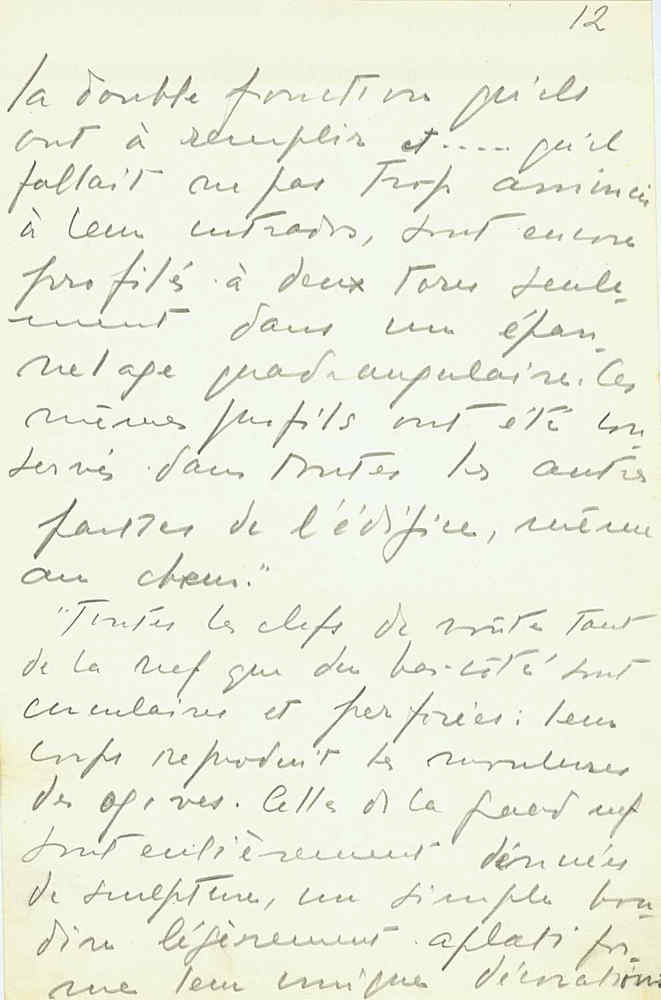 12
la double fonction qu'ils
ont à remplir et ..... qu'il
fallait ne pas trop amincir
à leur intrados, sont encore
profilés à deux tores seule-
ment dans un épan-
nelage quadrangulaire. Ces
mêmes profils ont été con-
servés dans toutes les autres
parties de l'édifice, même
au chœur."
"Toutes les clefs de voûte tant
de la nef que du bas-côté sont
circulaires et perforées; leur
corps reproduit les moulures
des ogives. Celles de la grand nef
sont entièrement dénuées
de sculpture, un simple bou-
din légèrement aplati for-
me leur unique décoration